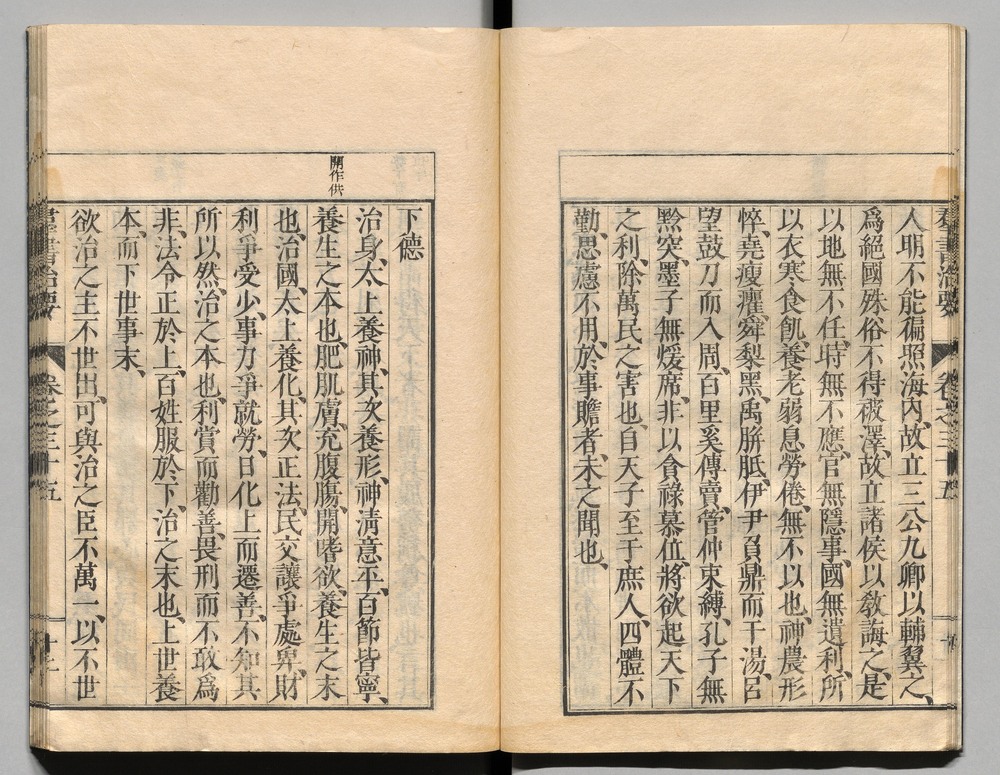 羣書治要 卷之三十五
人明不能徧照海內、故立三公九卿以輔翼之、
爲絕國殊俗不得被澤、故立諸侯以敎誨之、是
以地無不任、時無不應、官無隱事、國無遺利、所
以衣寒食飢、養老弱、息勞倦、無不以也、神農形
悴、堯瘦癯、舜犁黑、禹胼胝、伊尹負鼎而干湯、呂
望鼓刀而入周、百里奚傳賣、管仲束縛、孔子無
黔突、墨子無煖席、非以貪祿慕位、將欲起天下
之利、除萬民之害也、自天子至于庶人、四體不
勤、思慮不用、於事贍者、未之聞也、
下德
治身、太上養神、其次養形、神淸意平、百節皆寧、
開作供
養生之本也、肥肌膚、充腹腸、開嗜欲、養生之末
也、治國、太上養化、其次正法、民交讓爭處卑、財
利爭受少、事力爭就勞、日化上而遷善、不知其
所以然、治之本也、利賞而勸善、畏刑而不敢爲
非、法令正於上、百姓服於下、治之末也、上世養
本、而下世事末、
欲治之主不世出、可與治之臣不萬一、以不世
羣書治要 卷之三十五